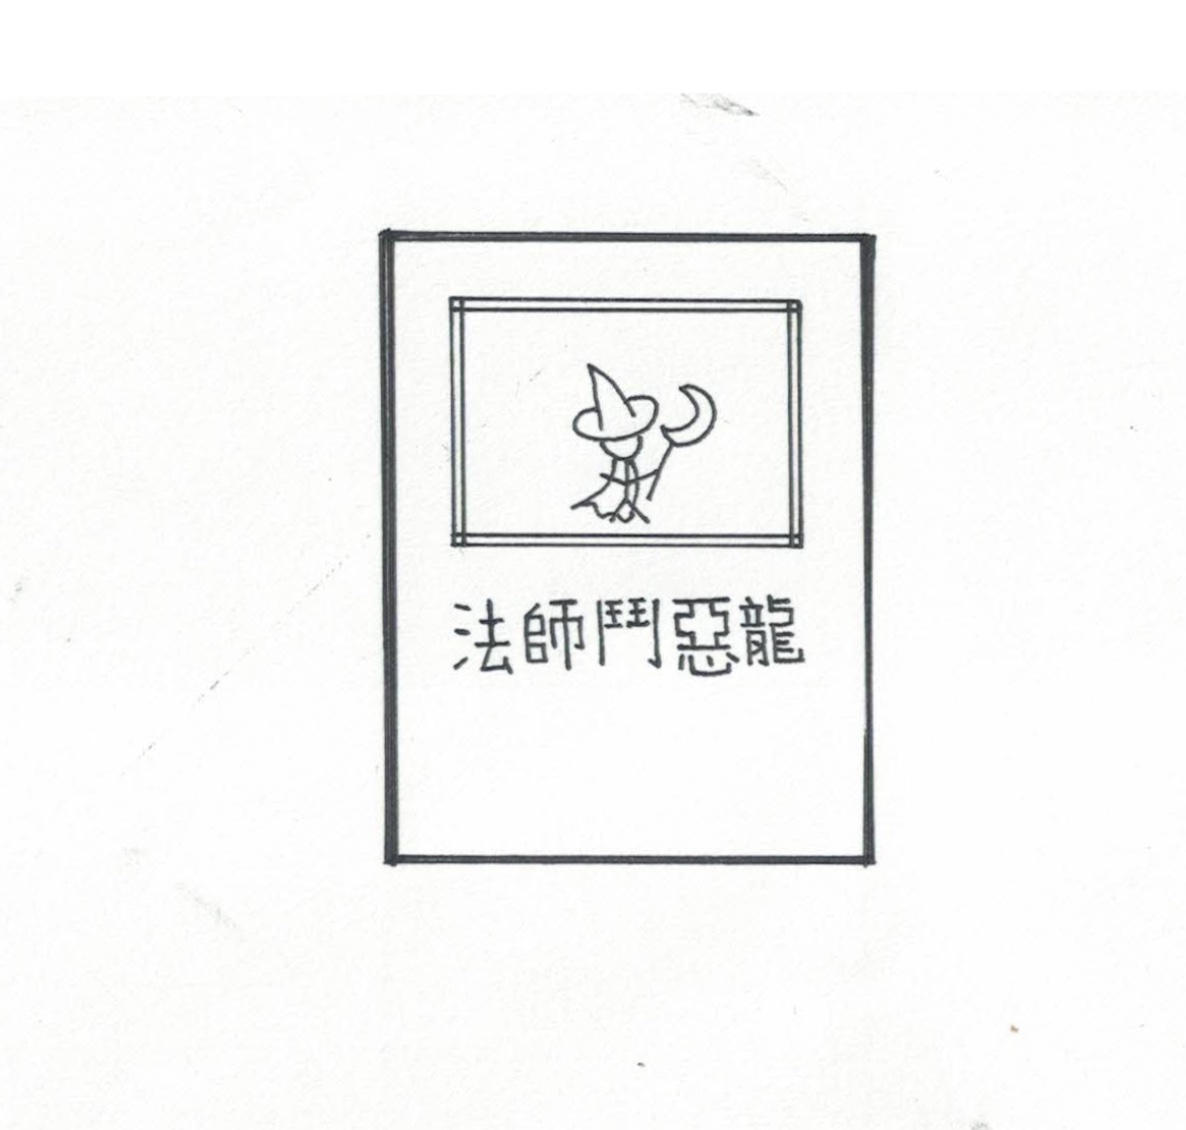 法師鬥惡龍